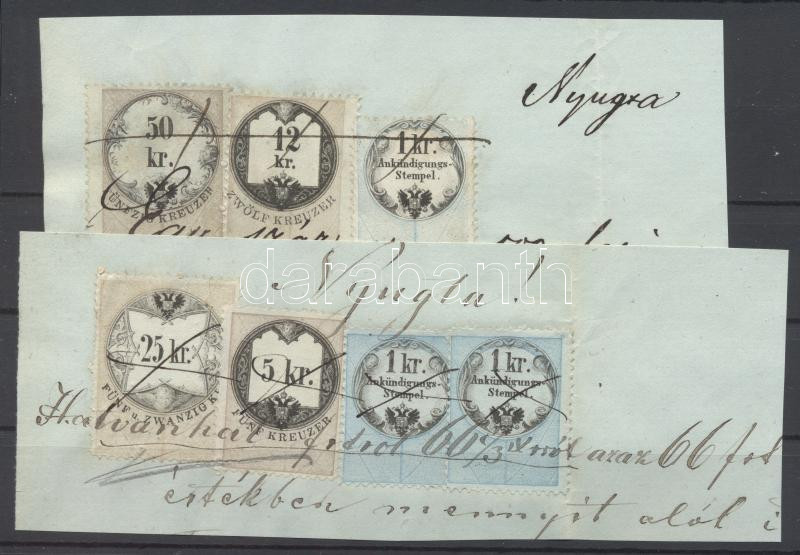 Nyugta
50
kr.
FÜNFZIG KREUZER
12
kr.
ZWÖLF KREUZER
1 kr.
Ankündigungs-
Stempel.
darabanth
Nyugta!
25 kr.
FÜNF u. ZWANZIG Kr
5 kr.
FÜNF KREUZER
1 kr.
Ankündigungs-
Stempel.
1 kr.
Ankündigungs-
Stempel.
Hatvanhat 66 azaz 66 frt
értékben mennyit alól i